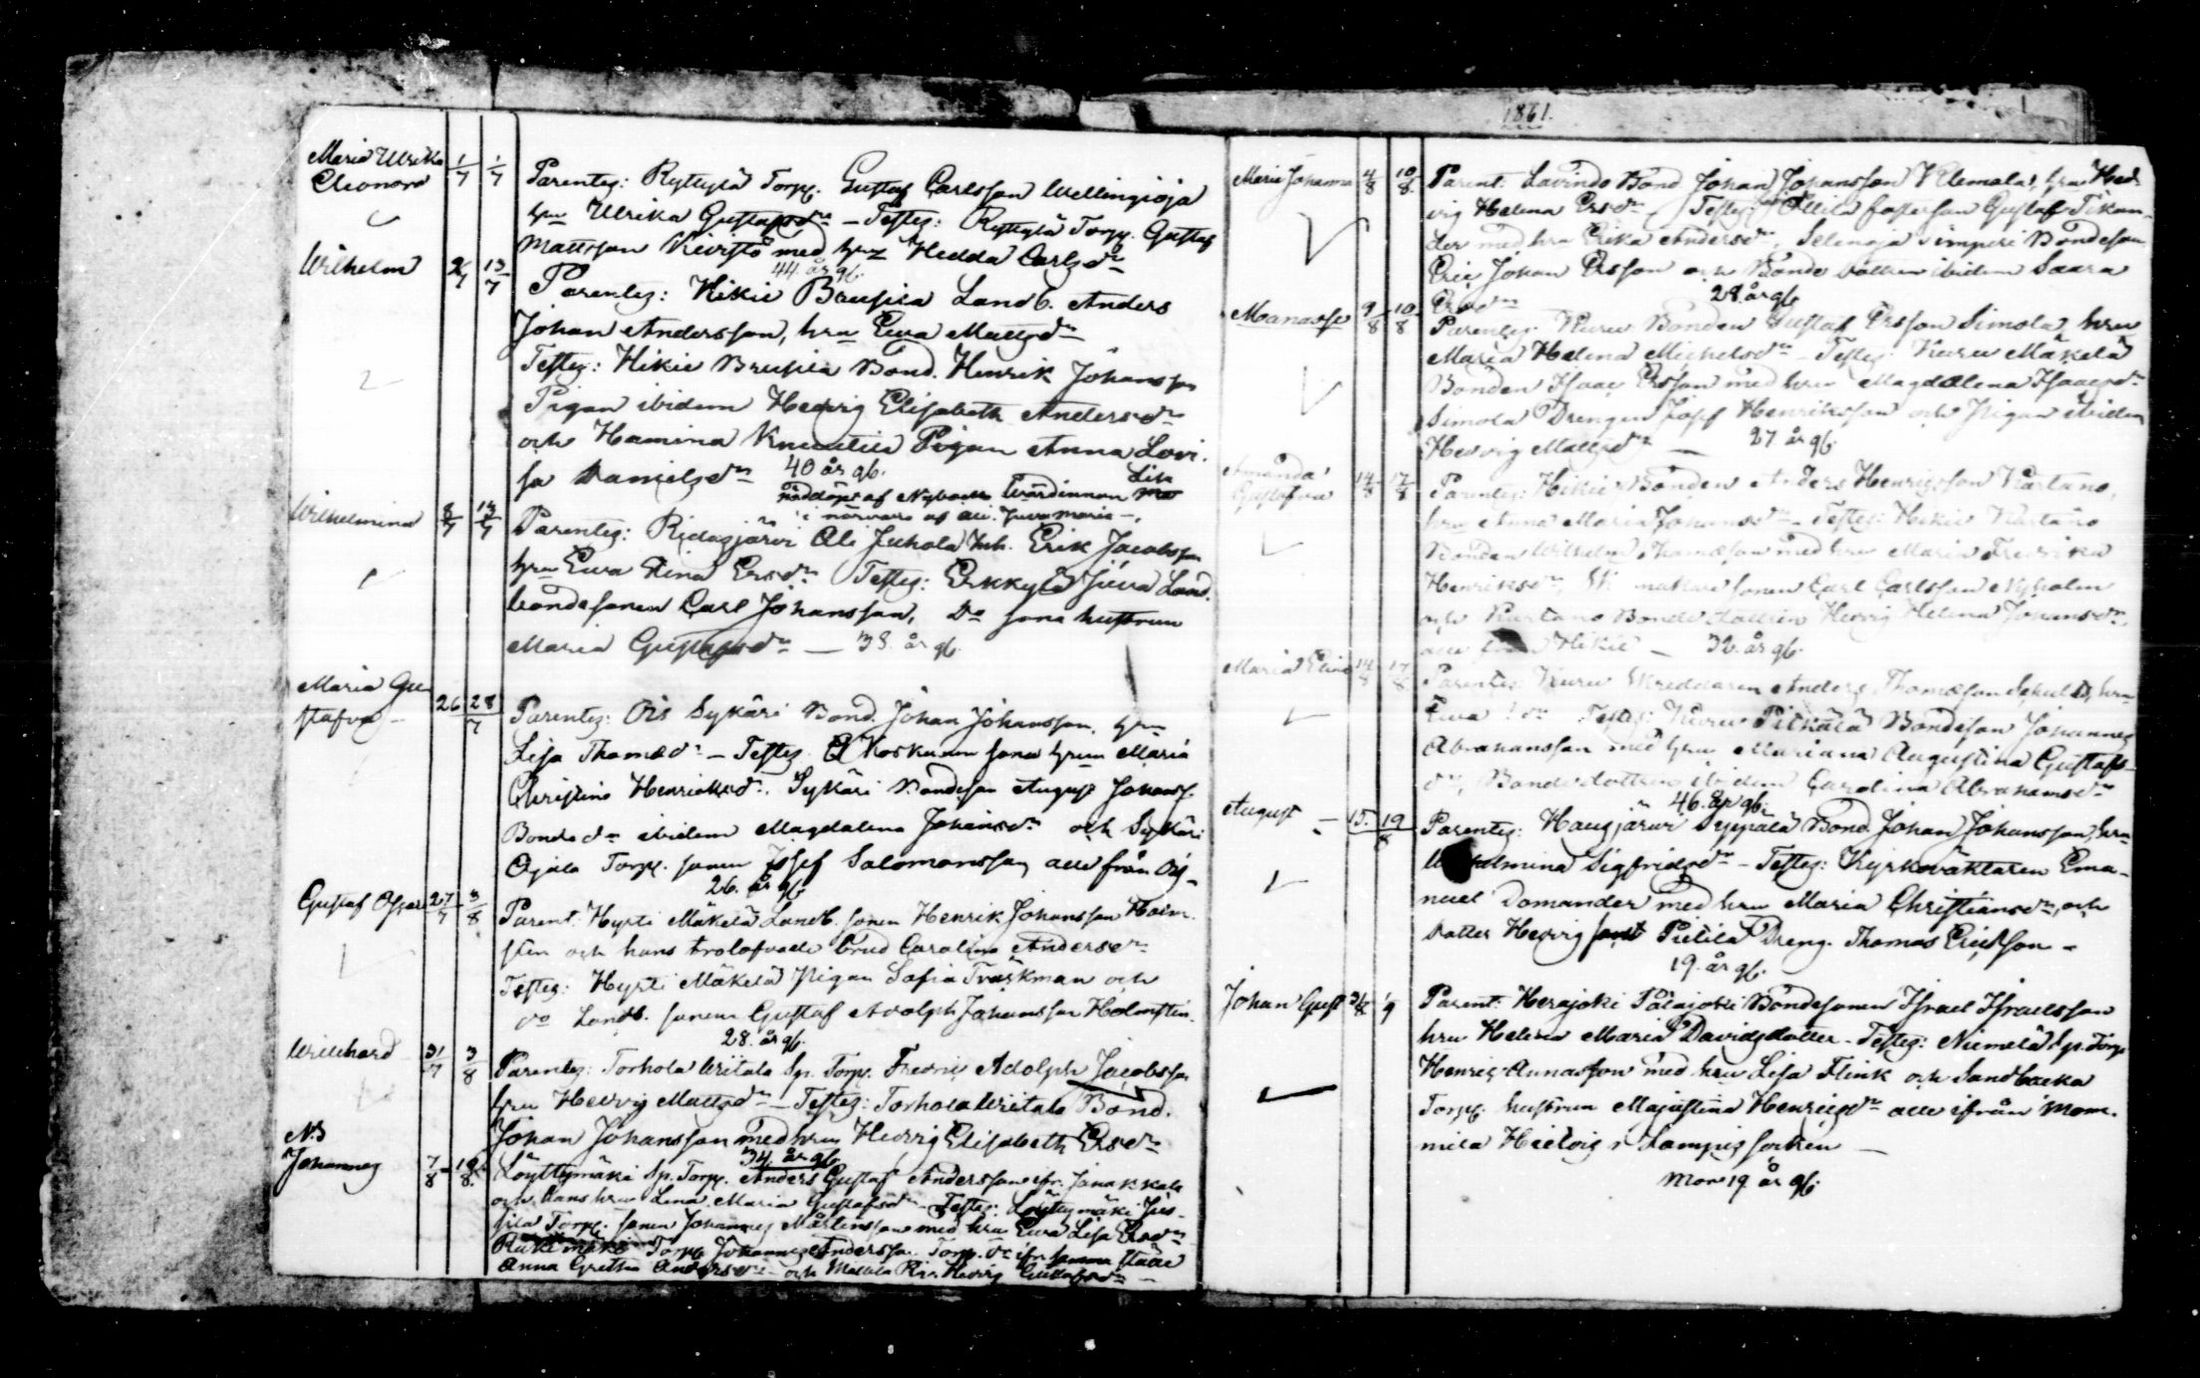 Maria Ulrika 1/7 1/7 Parentes: Ryttylä Torp. Gustaf Carlsson Wellingioja
Eleonora hru Ulrika Gustafsdr – Testes: Ryttylä Torp. Gustaf
Mattsson Kivistö med hru Hedda Carlsdr
44 år gl.
Wilhelm 2/7 13/7 Parentes: Hikie Brusila Landb. Anders
Johan Andersson, hru Eva Mattsdr
Testes: Hikie Brusila Bond. Henrik Johansson
Pigan ibidem Hedvig Elisabeth Andersdr
och Hamina Pigan Anna Lovi-
sa Danielsdr 40 år gl.
nöddöpt af Nybacka Värdinnan Lisa
i närvaro af
Wilhelmina 8/7 14/7 Parentes: Ridasjärvi Ali Juhola Inh. Erik Jacobsson
hru Eva Stina Ersdr Testes: Erkkylä Juva Land-
bondesonen Carl Johansson, Do sona hustrun
Maria Gustafsdr — 38 år gl.
Maria Gu-
stafva 26 28/7 Parentes: Ois Sykäri Bond. Johan Johansson, hru
Lisa Thomædr – Testes: Koskunen sona hrun Maria
Christina Henriksdr. Sykäri Bondeson August Johanss.
Bondedr ibidem Magdalena Johansdr och Sykäri
Ojala Torp. sonen Josef Salomonsson alle från Ois –
26 år gl.
Gustaf Oskar 27/7 3/8 Parent: Hyrti Mäkelä Landb. sonen Henrik Johansson Holm-
sten och hans trolofvade brud Carolina Andersdr
Testes: Hyrti Mäkelä Pigan Sofia Träskman och
do Landb. sonen Gustaf Adolph Johansson Holmsten.
28 år gl.
Willehard 31/7 3/8 Parentes: Torhola Uitala Sp. Torp. Fredric Adolph Jacobsson
hru Hedvig Mattsdr – Testes: Torhola Uitala Bond.
Johan Johansson med hru Hedvig Elisabeth Ersdr
34 år gl.
Johannes 7/8 19/8 Löyttymäki Sp. Torp. Anders Gustaf Andersson ifr. Janakkala
och hans hru Lena Maria Gustafsdr – Testes: Löyttymäki Jus-
sila Torp. sonen Johannes Mårtensson med hru Eva Lisa Ersdr
Torp. Johannes Andersson Torp. dr ifr. samma ställe
Anna Gretha Andersdr – och Hedvig Gustafsdr –
1861.
Maria Johanna 4/8 10/8 Parent: Lavinto Bond Johan Johansson Klemola, hru Hed-
vig Helena Ersdr – Testes: Ollila Gustaf Tikan-
der med hru Erika Andersdr, Selenoja Simperi Bondeson
Eric Johan Ersson och Bonde dottren ibidem Saara
Ersdr 28 år gl.
Manasse 9/8 10/8 Parentes: Kuru Bonden Gustaf Ersson Simola, hru
Maria Helena Michelsdr – Testes: Kuru Mäkelä
Bonden Isaac Ersson med hru Magdalena Isaacsdr
Simola Drengen Josef Henriksson och Pigan ibidem
Hedvig Mattsdr — 27 år gl.
Amanda
Gustafva 14/8 17/8 Parentes: Hikie Bonden Anders Henriksson Kartano,
hru Anna Maria Johansdr – Testes: Hikie Kartano
Bonden Wilhelm Thomasson med hru Maria Fredrika
Henriksdr, sonen Carl Carlsson Nyholm
och Kartano Bonde dottren Hedvig Helena Johansdr,
alle från Hikie — 32 år gl.
Maria Elina 14/8 17/8 Parentes: Kuru Skreddaren Anders Thomasson hru
Eva Testes: Kuru Pitkälä Bondeson Johannes
Abrahamsson med hru Mariana Augustina Gustafs-
dr, Bonde dottren ibidem Carolina Abrahamsdr
46 år gl.
August 15. 19/8 Parentes: Hausjärvi Seppälä Bond. Johan Johansson, hru
Wilhelmina Sigfridsdr – Testes: Kyrkovaktaren Ema-
nuel Domander med hru Maria Christiansdr, och
dotter Hedvig samt Pietilä Dreng. Thomas Ericsson –
19 år gl.
Johan Gust 31/8 1/9 Parent: Herajoki Palajoki Bondesonen Israel Israelsson
hru Helena Maria Davidsdotter – Testes: Niemelä Sp. Torp.
Henric Annasson med hru Lisa Flink och Sandbacka
Torp. hustrun Majastina Henricsdr alle ifrån Mom-
mila Hietois i Lampis socken —
Mor 19 år gl.